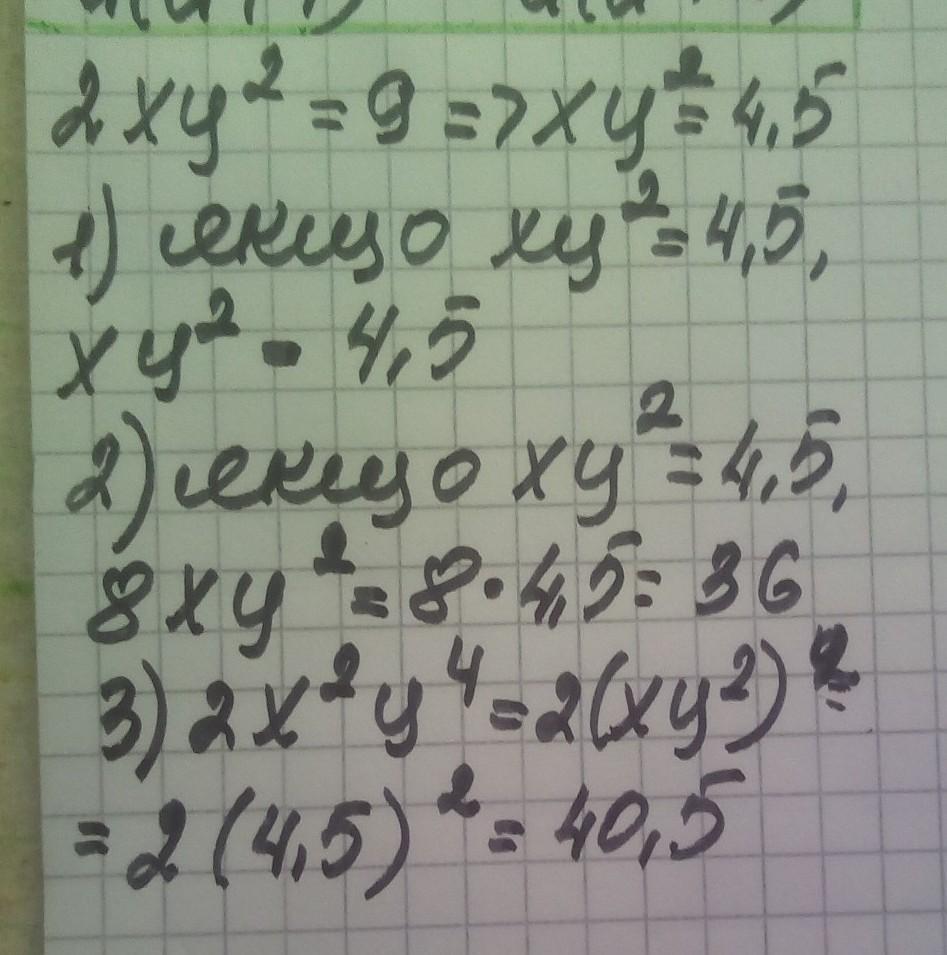 2xy² = 9 => xy² = 4,5
1) якщо xy² = 4,5,
xy² = 4,5
2) якщо xy² = 4,5,
8xy² = 8·4,5 = 36
3) 2x²y⁴ = 2(xy²)² =
= 2(4,5)² = 40,5